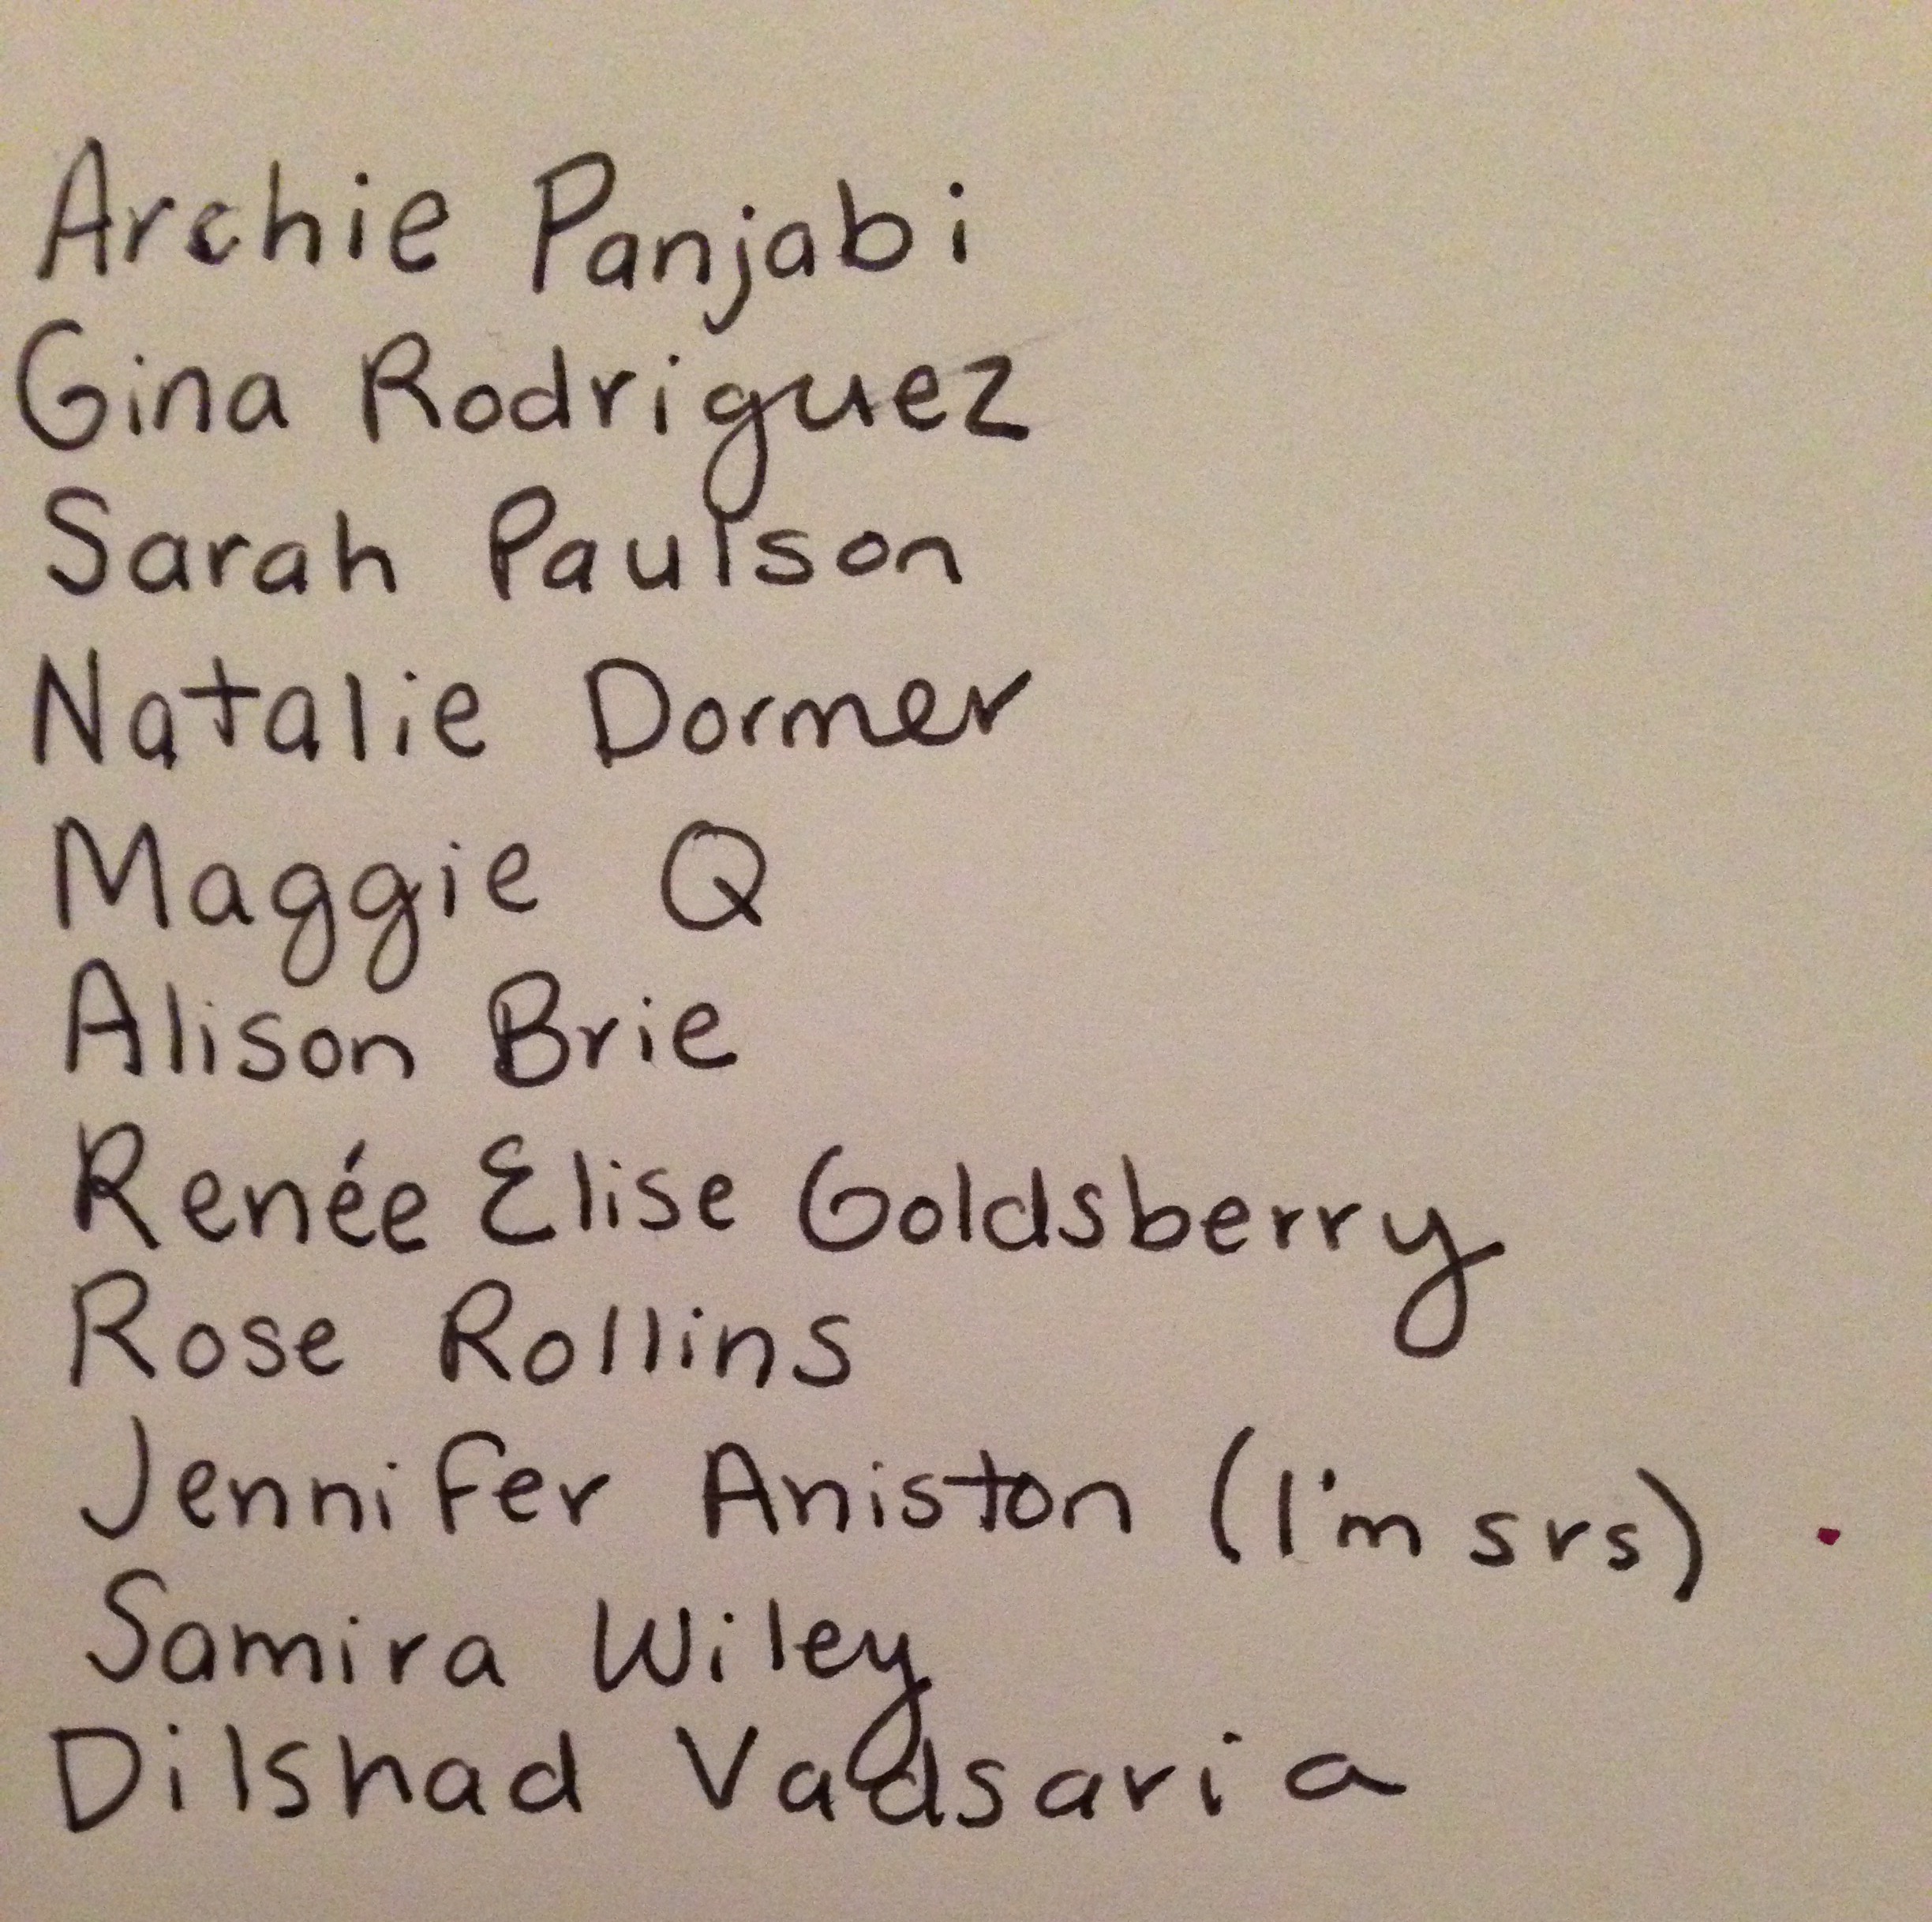 Archie Panjabi
Gina Rodriguez
Sarah Paulson
Natalie Dormer
Maggie Q
Alison Brie
Renée Elise Goldsberry
Rose Rollins
Jennifer Aniston (I'm srs)
Samira Wiley
Dilshad Vadsaria